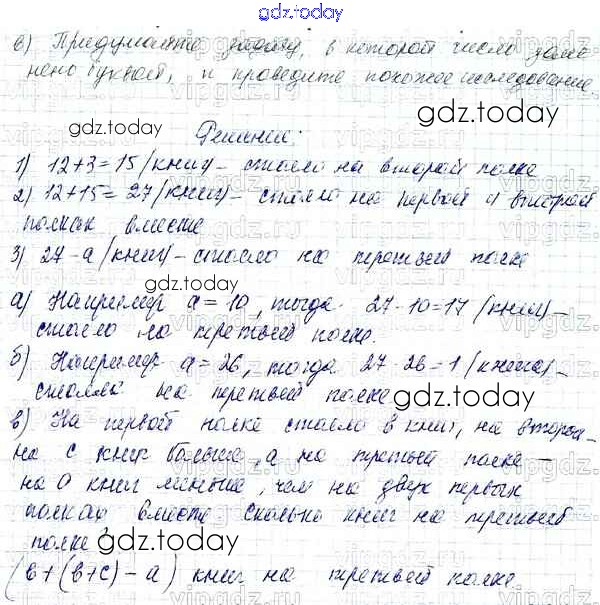 gdz.today
в) Придумайте задачу, в которой число заме
нено буквой, и проведите похожее исследование.
gdz.today
Решение:
1) 12+3=15 (книг) - стояло на второй полке
2) 12+15=27 (книг) - стояло на первой и второй
полках вместе
3) 27-а (книг) - стояло на третьей полке
gdz.today
а) Например а=10, тогда 27-10=17 (книг) -
стояло на третьей полке.
б) Например а=26, тогда 27-26=1 (книга) -
стояла на третьей полке
gdz.today
в) На первой полке стояло в книг, на второй -
на с книг больше, а на третьей полке -
на а книг меньше, чем на двух первых
полках вместе. Сколько книг на третьей
полке?
gdz.today
(в+(в+с)-а) книг на третьей полке